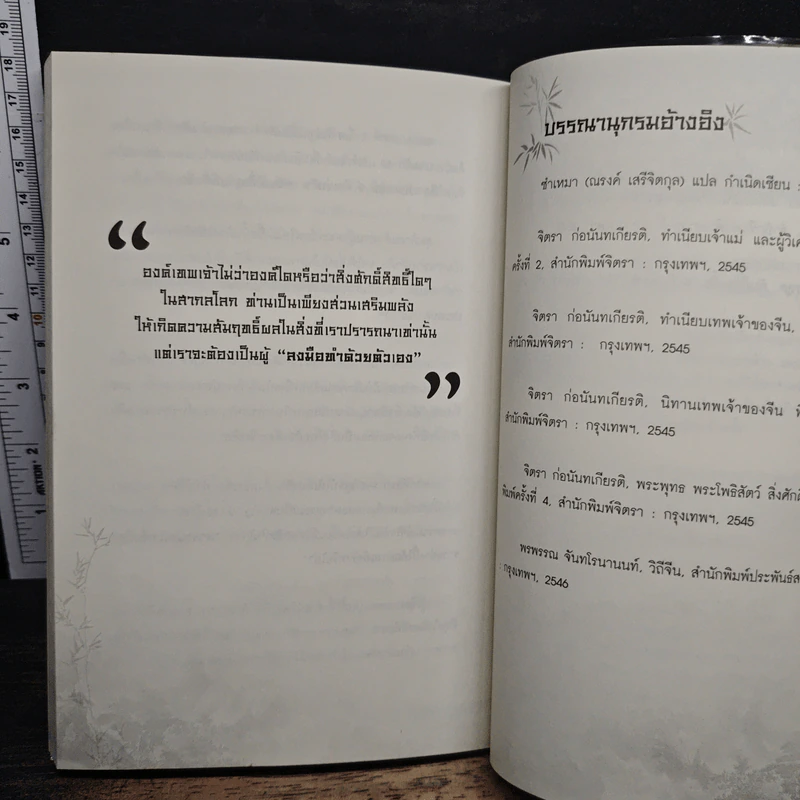 “
องค์เทพเจ้าไม่ว่าองค์ใดหรือว่าสิ่งศักดิ์สิทธิ์ใดๆ
ในสากลโลก ท่านเป็นเพียงส่วนเสริมพลัง
ให้เกิดความสัมฤทธิ์ผลในสิ่งที่เราปรารถนาเท่านั้น
แต่เราจะต้องเป็นผู้ “ลงมือทำด้วยตัวเอง”
”
บรรณานุกรมอ้างอิง
ซำเหมา (ณรงค์ เสรีจิตกุล) แปล กำเนิดเซียน :
จิตรา ก่อนันทเกียรติ, ทำเนียบเจ้าแม่ และผู้วิเศ
ครั้งที่ 2, สำนักพิมพ์จิตรา : กรุงเทพฯ, 2545
จิตรา ก่อนันทเกียรติ, ทำเนียบเทพเจ้าของจีน,
สำนักพิมพ์จิตรา : กรุงเทพฯ, 2545
จิตรา ก่อนันทเกียรติ, นิทานเทพเจ้าของจีน
สำนักพิมพ์จิตรา : กรุงเทพฯ, 2545
จิตรา ก่อนันทเกียรติ, พระพุทธ พระโพธิสัตว์ สิ่งศักดิ
พิมพ์ครั้งที่ 4, สำนักพิมพ์จิตรา : กรุงเทพฯ, 2545
พรพรรณ จันทโรนานนท์, วิถีจีน, สำนักพิมพ์ประพันธ์ส
: กรุงเทพฯ, 2546
19
18
17
16
15
14
13
12
11
10
5
4
3
2
1